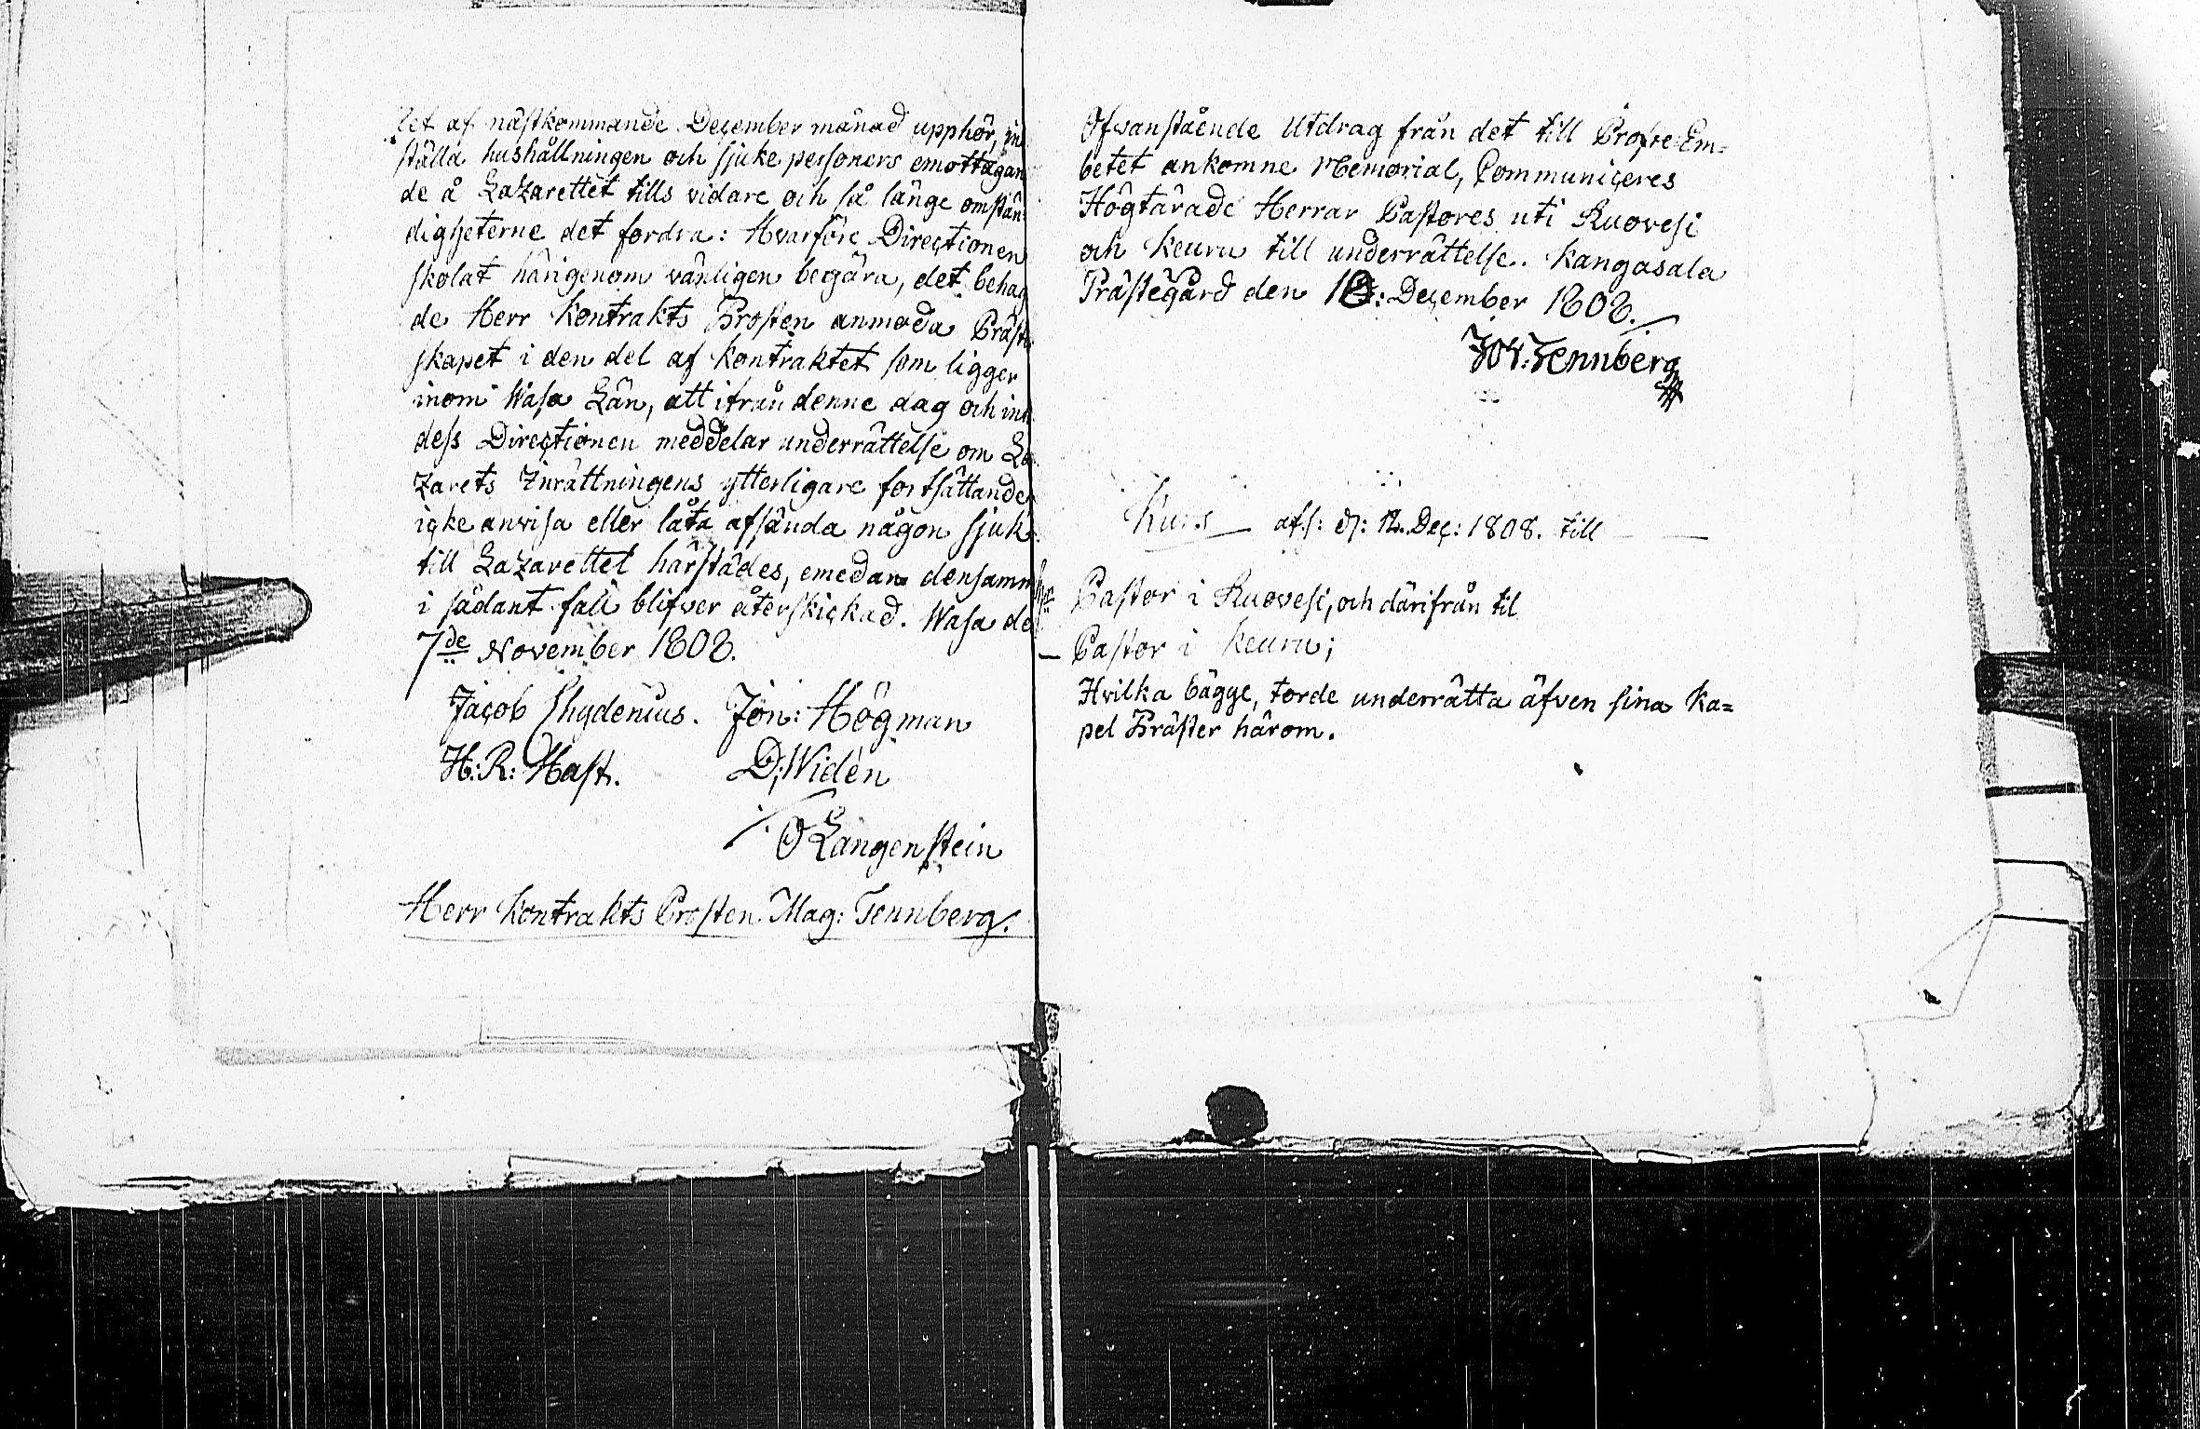 let af nästkommande December månad upphör, in
ställa hushållningen och sjuke personers emottagan
de å Lazarettet tills vidare och så länge omstän
digheterne det fordra: Hvarföre Directionen
skolat härigenom vänligen begära, det behag
de Herr Kontrakts Prosten anmoda Präste
skapet i den del af Kontraktet som ligger
inom Wasa Län, att ifrån denne dag och in
dess Directionen meddelar underrättelse om La
zarets Inrättningens ytterligare fortsättande
icke anvisa eller låta afsända någon sjuk
till Lazarettet härstädes, emedan densamm
i sådant fall blifver återskickad. Wasa de
7de November 1808.
Jacob Chydenius. Jon: Högman
H: R: Hast. D: Widén
/. O Langenstein
Herr Kontrakts Prosten Mag: Tennberg.
Ofvanstående Utdrag från det till Prosте Em=
betet ankomne Memorial, Communiceres
Högtärade Herrar Pastores uti Ruovesi
och Keuru till underrättelse. Kangasala
Prästegård den 12: December 1808.
Joh: Tennberg
Kurs afs: d: 12. Dec: 1808. till
Pastor i Ruovesi, och därifrån til
— Pastor i Keuru;
Hvilka bägge, torde underrätta äfven sina Ka=
pel Präster härom.